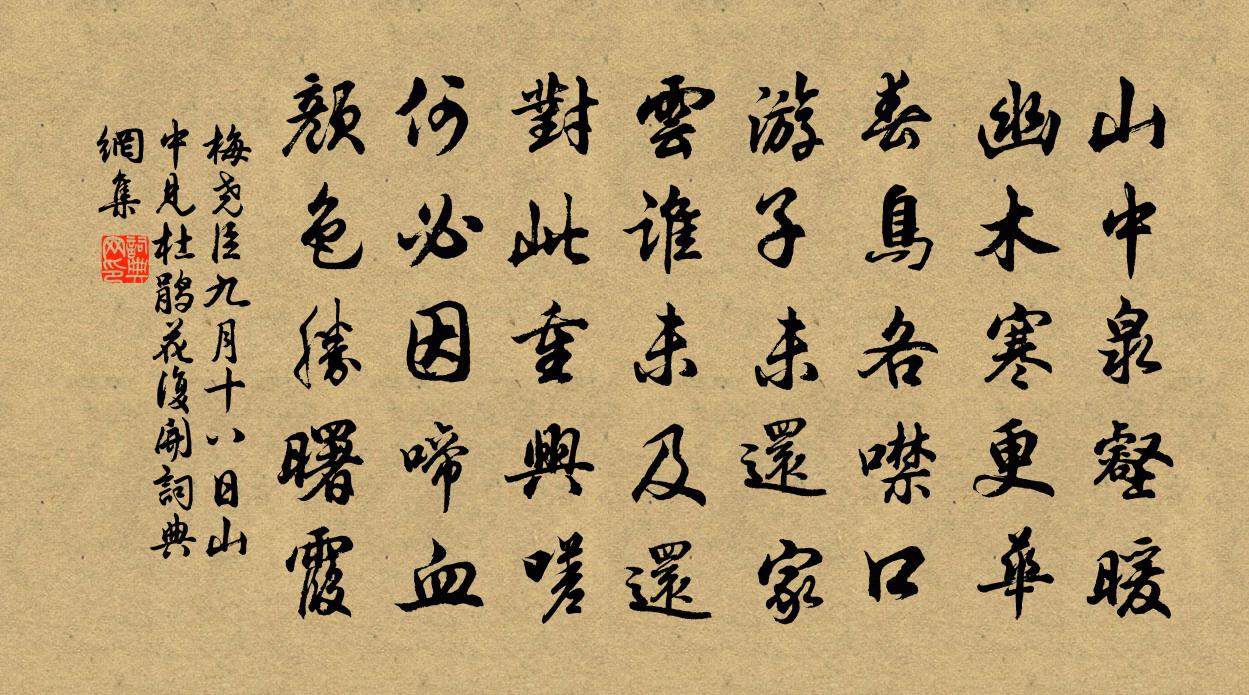 山中泉壑暖
幽木寒更華
春鳥各噤口
游子未還家
雲誰未及還
對此重興嗟
何必因啼血
顏色勝曙霞
梅堯臣九月十八日山
中見杜鵑花復開詞典
網集
詞典
网印